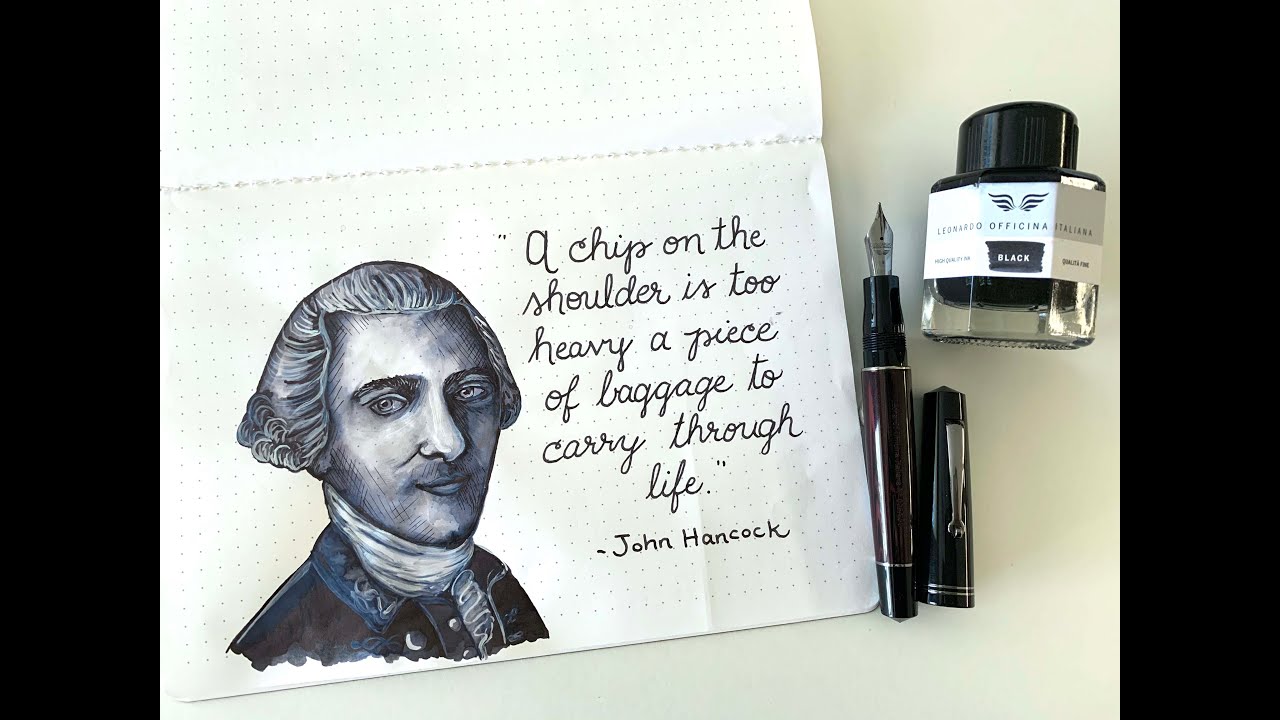 " A chip on the
shoulder is too
heavy a piece
of baggage to
carry through
life."
- John Hancock
LEONARDO OFFICINA ITALIANA
HIGH QUALITY INK
BLACK
QUALITÀ FINE